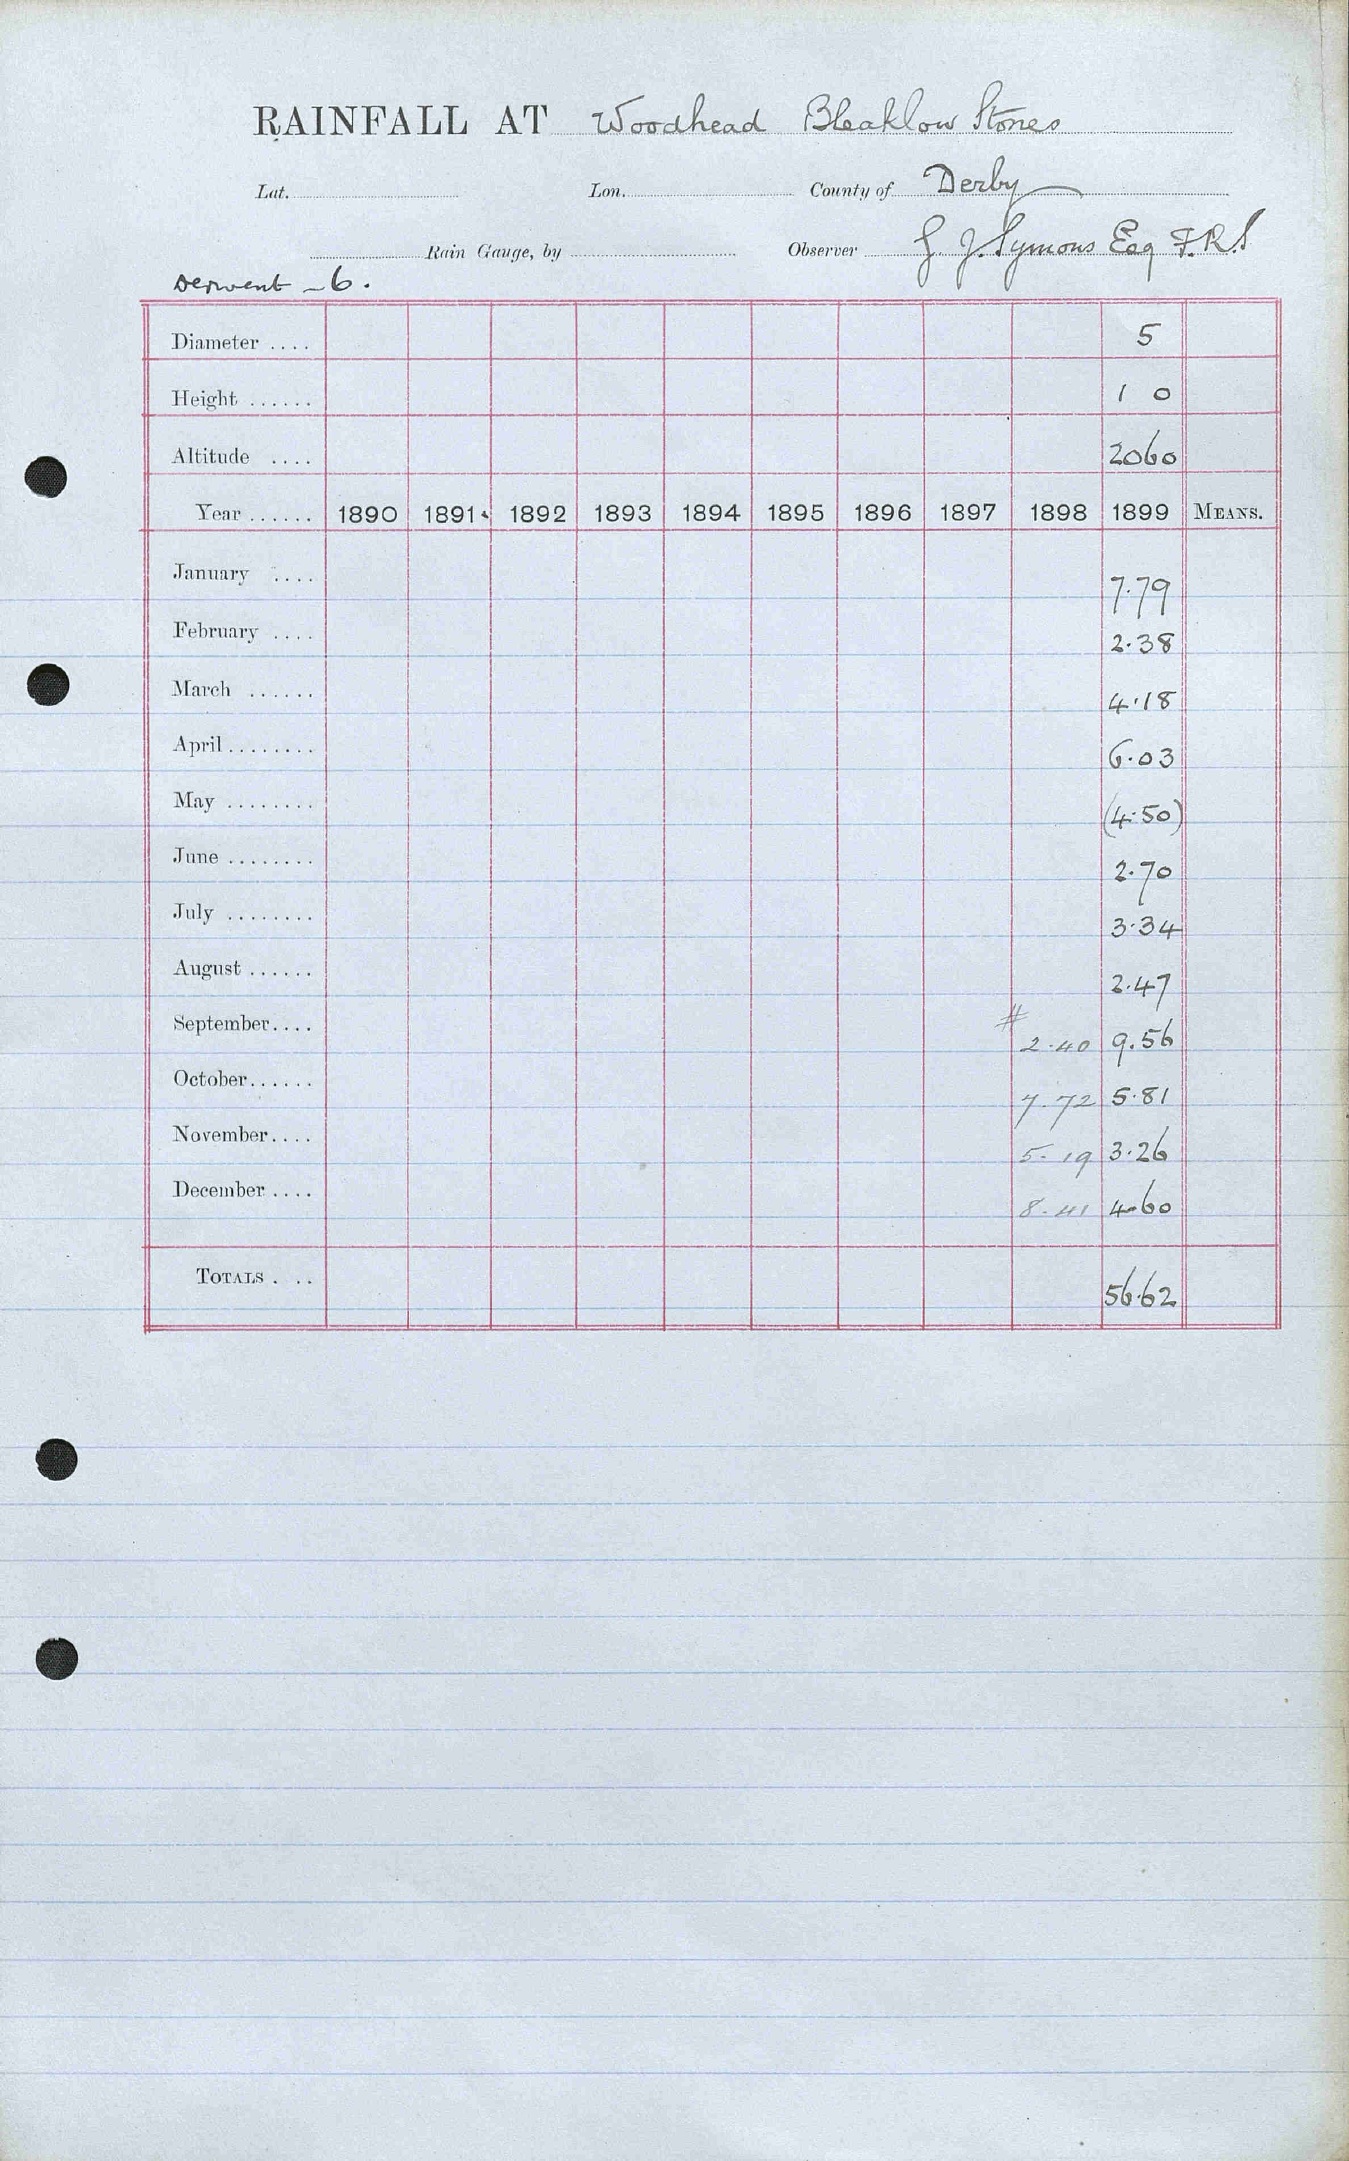 RAINFALL AT Woodhead Bleaklow Stones
Lat. Lon. County of Derby
Rain Gauge, by Observer G. J. Symons Esq F.R.S
Derwent - 6.
Diameter .... 5
Height ...... 1 0
Altitude .... 2060
Year ...... 1890 1891 1892 1893 1894 1895 1896 1897 1898 1899 MEANS.
January .... 7.79
February .... 2.38
March ...... 4.18
April ........ 6.03
May ........ (4.50)
June ........ 2.70
July ........ 3.34
August ...... 2.47
September.... # 2.40 9.56
October...... 7.72 5.81
November.... 5.19 3.26
December .... 8.41 4.60
TOTALS . .. 56.62